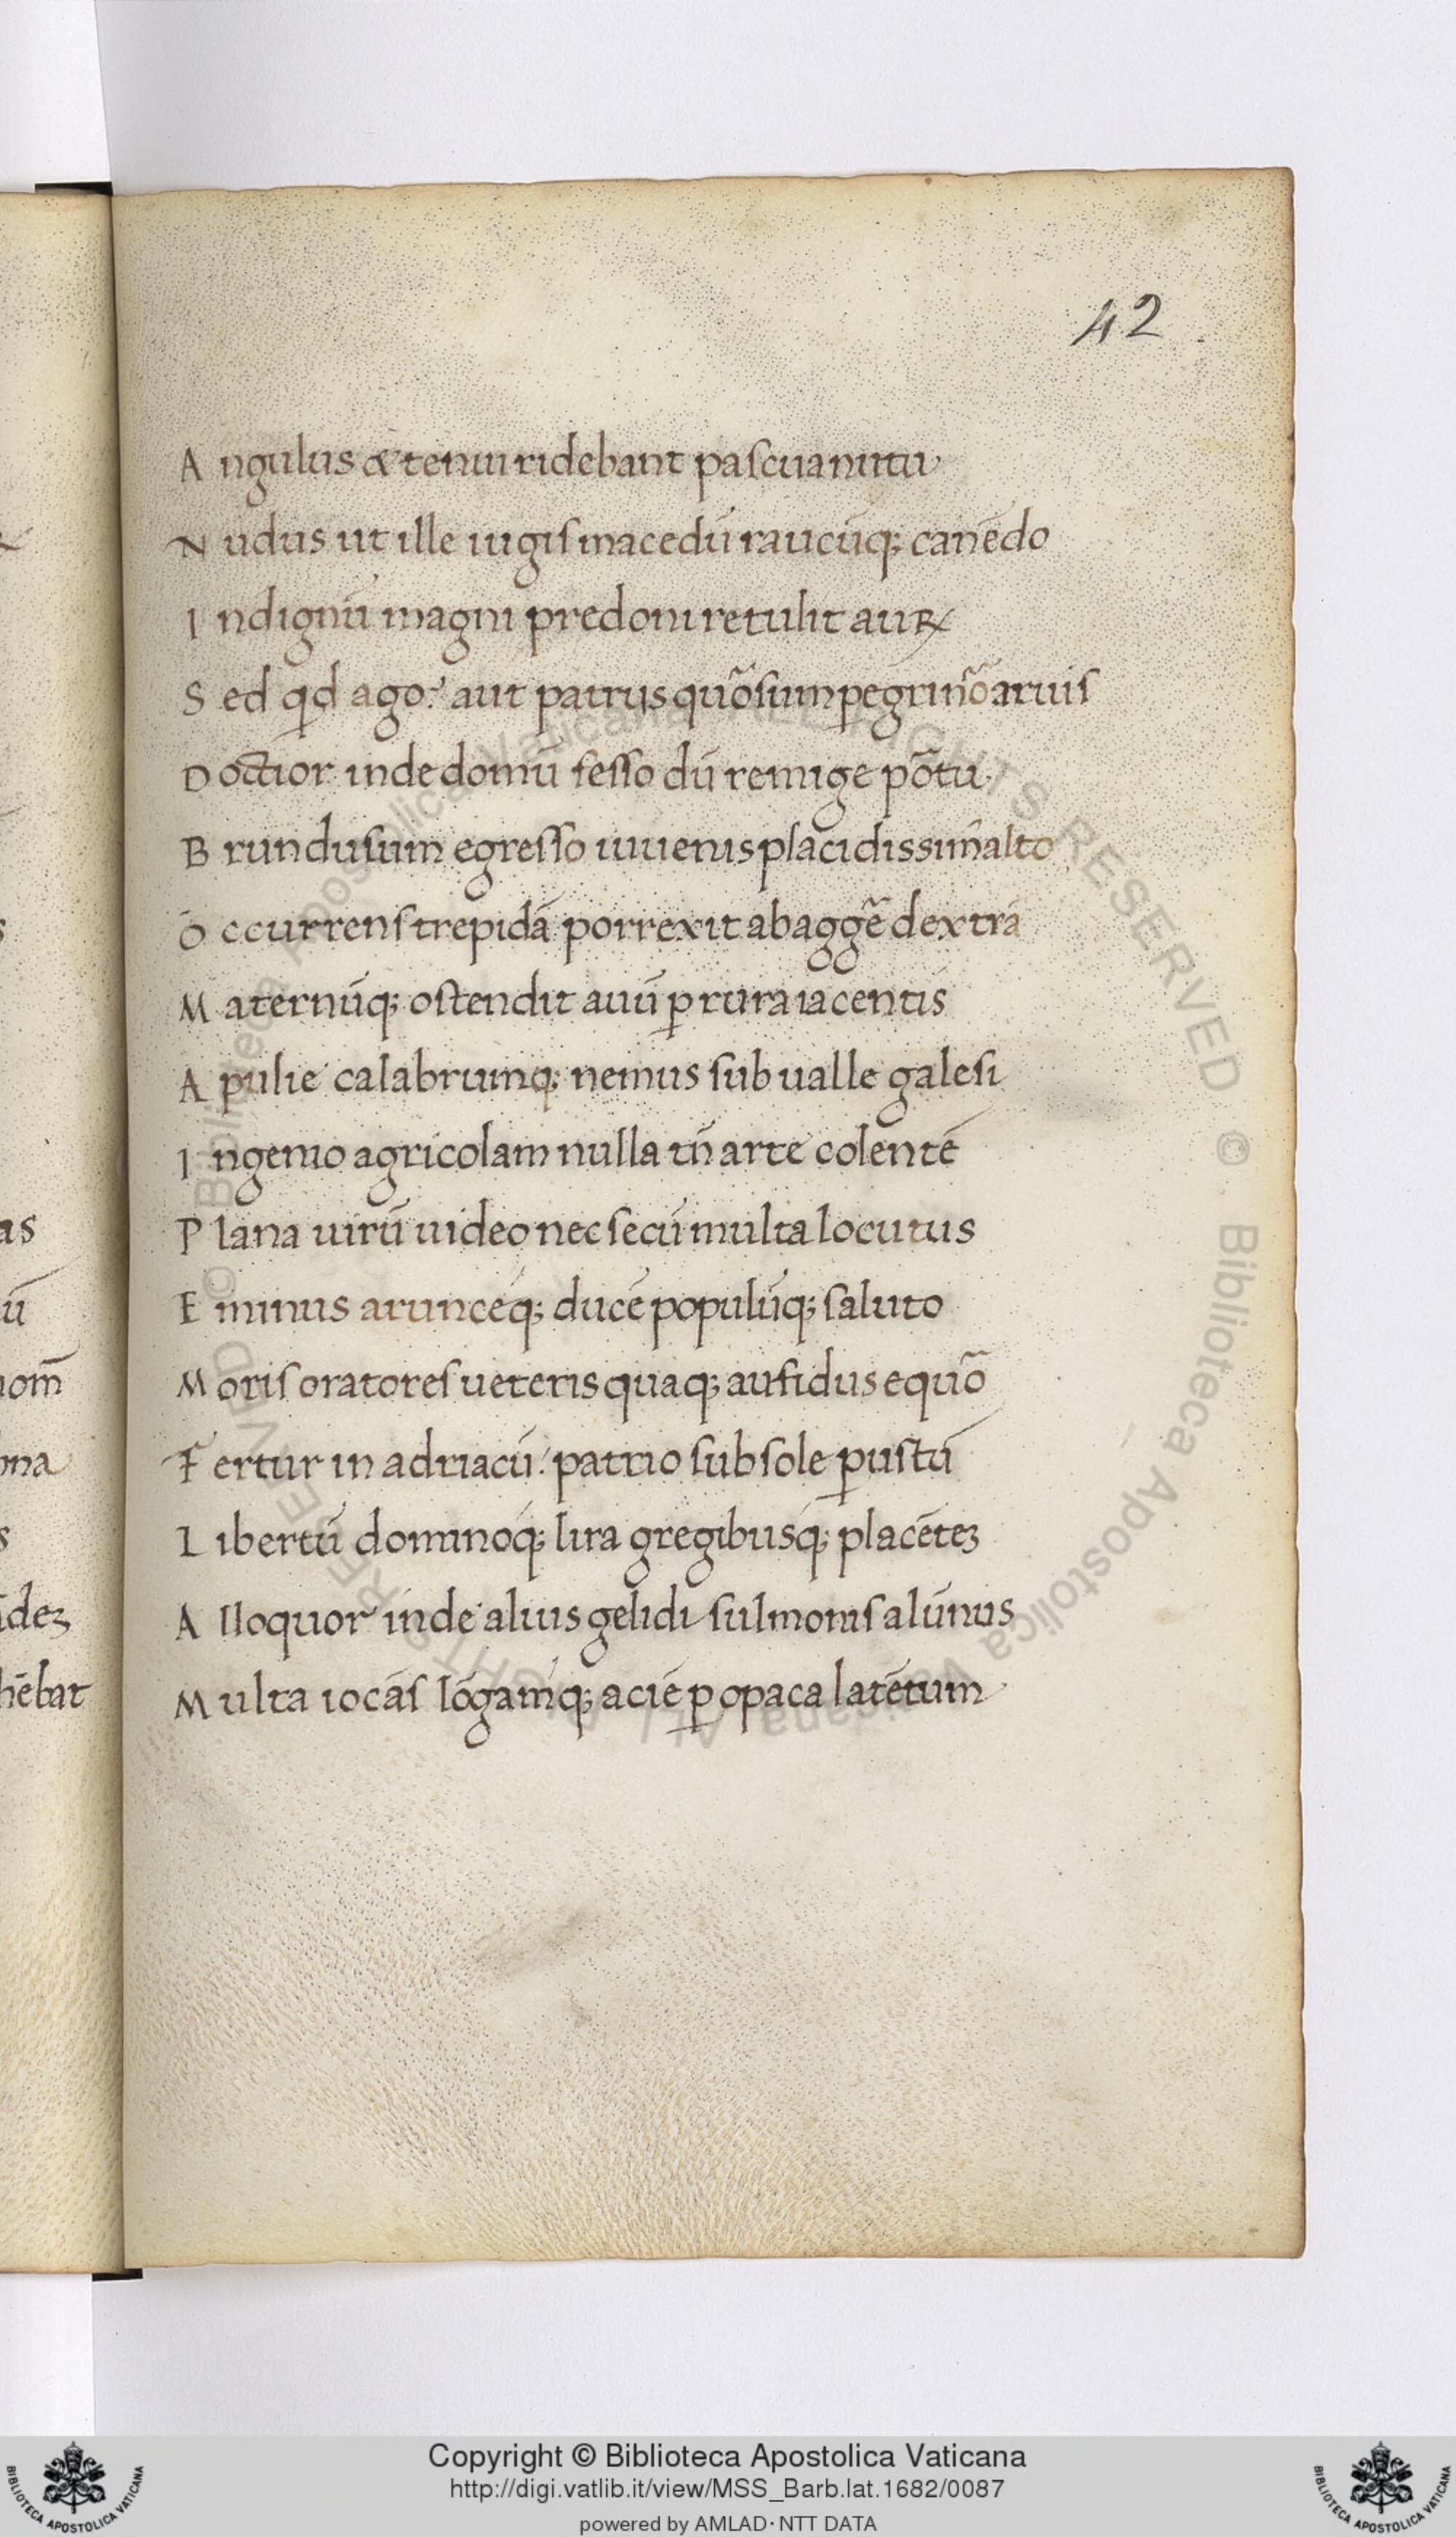 42
A ngulus & tenui ridebant pascua nutu
N udus ut ille iugis macedū raucūq; canēdo
I ndignū magni predoni retulit auꝝ
S ed qd ago? aut patrijs quō sum pegrinō aruis
D octior inde domū fesso dū remige pōtu
B rundusium egresso iuuenis placidissim̄ alto
O ccurrens trepidā porrexit ab aggē dextrā
M aternūq; ostendit auū ꝑ rura iacentis
A pulie calabrumq; nemus sub ualle galesi
I ngenio agricolam nulla tn̄ arte colentē
P lana uirū uideo nec secū multa locutus
E minus arunceq; ducē populūq; saluto
M oris oratores ueteris quaq; aufidus equō
F ertur in adriacū? patrio sub sole ꝑustū
L ibertū dominoq; lira gregibusq; placētēꝫ
A lloquor inde aluis gelidi sulmonis alūnus
M ulta iocās lōgamq; aciē ꝑ opaca latētum
as
ū
nom̄
ma
s
idēꝫ
hēbat
Copyright © Biblioteca Apostolica Vaticana
http://digi.vatlib.it/view/MSS_Barb.lat.1682/0087
powered by AMLAD·NTT DATA
BIBLIOTECA APOSTOLICA VATICANA
BIBLIOTECA APOSTOLICA VATICANA